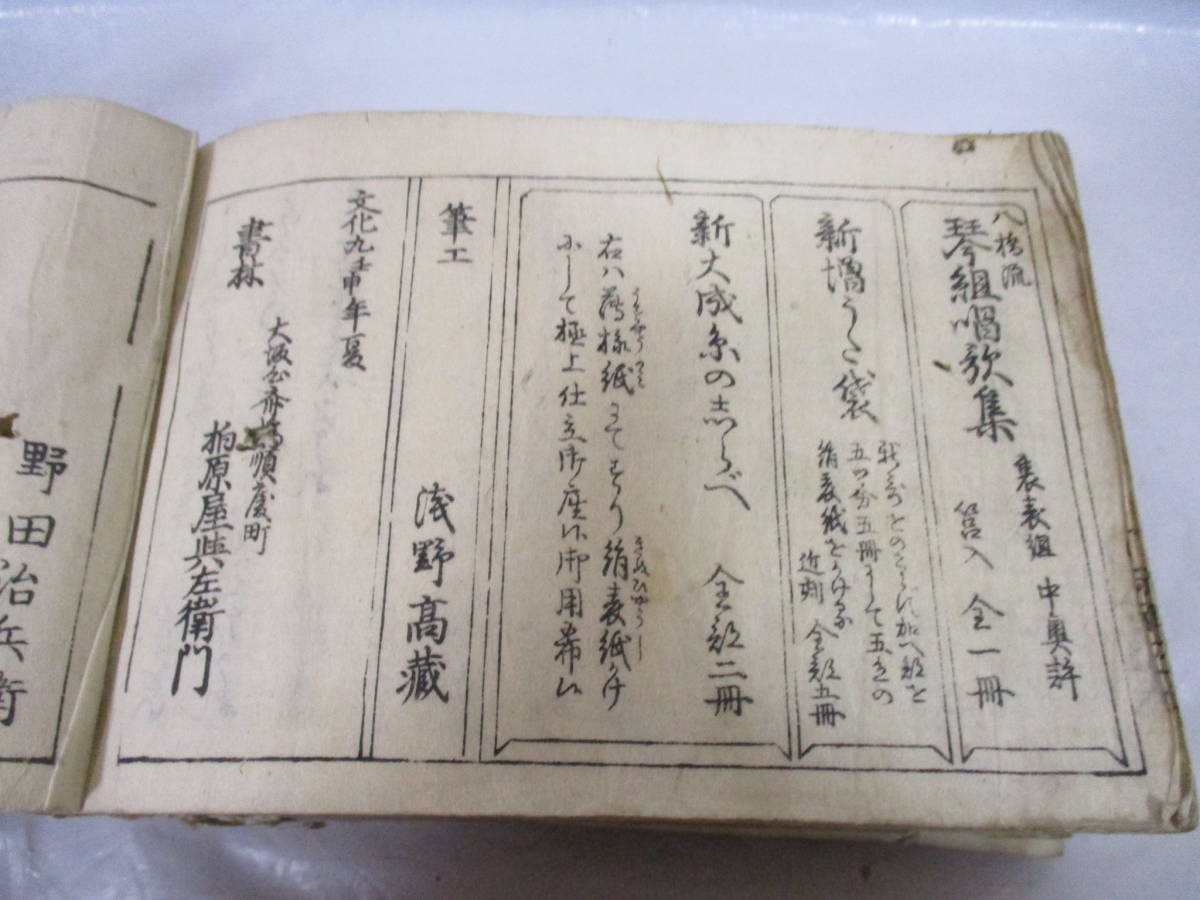 八橋流
琴組唱歌集
裏表組 中奥許
筥入 全一冊
新増うた袋
五つ分五冊にして五色の
絹表紙をかける
近刻 全部五冊
新大成糸のしらべ 全部二冊
右ハ薄様紙にてすり絹表紙かけ
にして極上仕立御座候御用希候
筆工 浅野高藏
文化九壬申年夏
書林
大坂心斎橋順慶町
柏原屋與左衛門
野田治兵衛